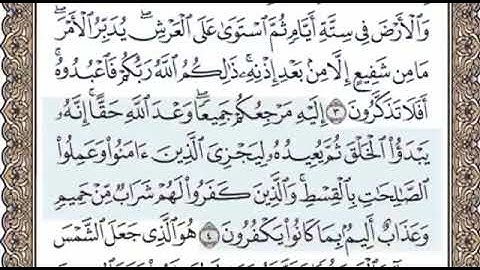 وَٱلۡأَرۡضَ فِي سِتَّةِ أَيَّامٖ ثُمَّ ٱسۡتَوَىٰ عَلَى ٱلۡعَرۡشِۖ يُدَبِّرُ ٱلۡأَمۡرَۖ
مَا مِن شَفِيعٍ إِلَّا مِنۢ بَعۡدِ إِذۡنِهِۦۚ ذَٰلِكُمُ ٱللَّهُ رَبُّكُمۡ فَٱعۡبُدُوهُۚ
أَفَلَا تَذَكَّرُونَ ٣ إِلَيۡهِ مَرۡجِعُكُمۡ جَمِيعٗاۖ وَعۡدَ ٱللَّهِ حَقًّاۚ إِنَّهُۥ
يَبۡدَؤُاْ ٱلۡخَلۡقَ ثُمَّ يُعِيدُهُۥ لِيَجۡزِيَ ٱلَّذِينَ ءَامَنُواْ وَعَمِلُواْ
ٱلصَّٰلِحَٰتِ بِٱلۡقِسۡطِۚ وَٱلَّذِينَ كَفَرُواْ لَهُمۡ شَرَابٞ مِّنۡ حَمِيمٖ
وَعَذَابٌ أَلِيمُۢ بِمَا كَانُواْ يَكۡفُرُونَ ٤ هُوَ ٱلَّذِي جَعَلَ ٱلشَّمۡسَ